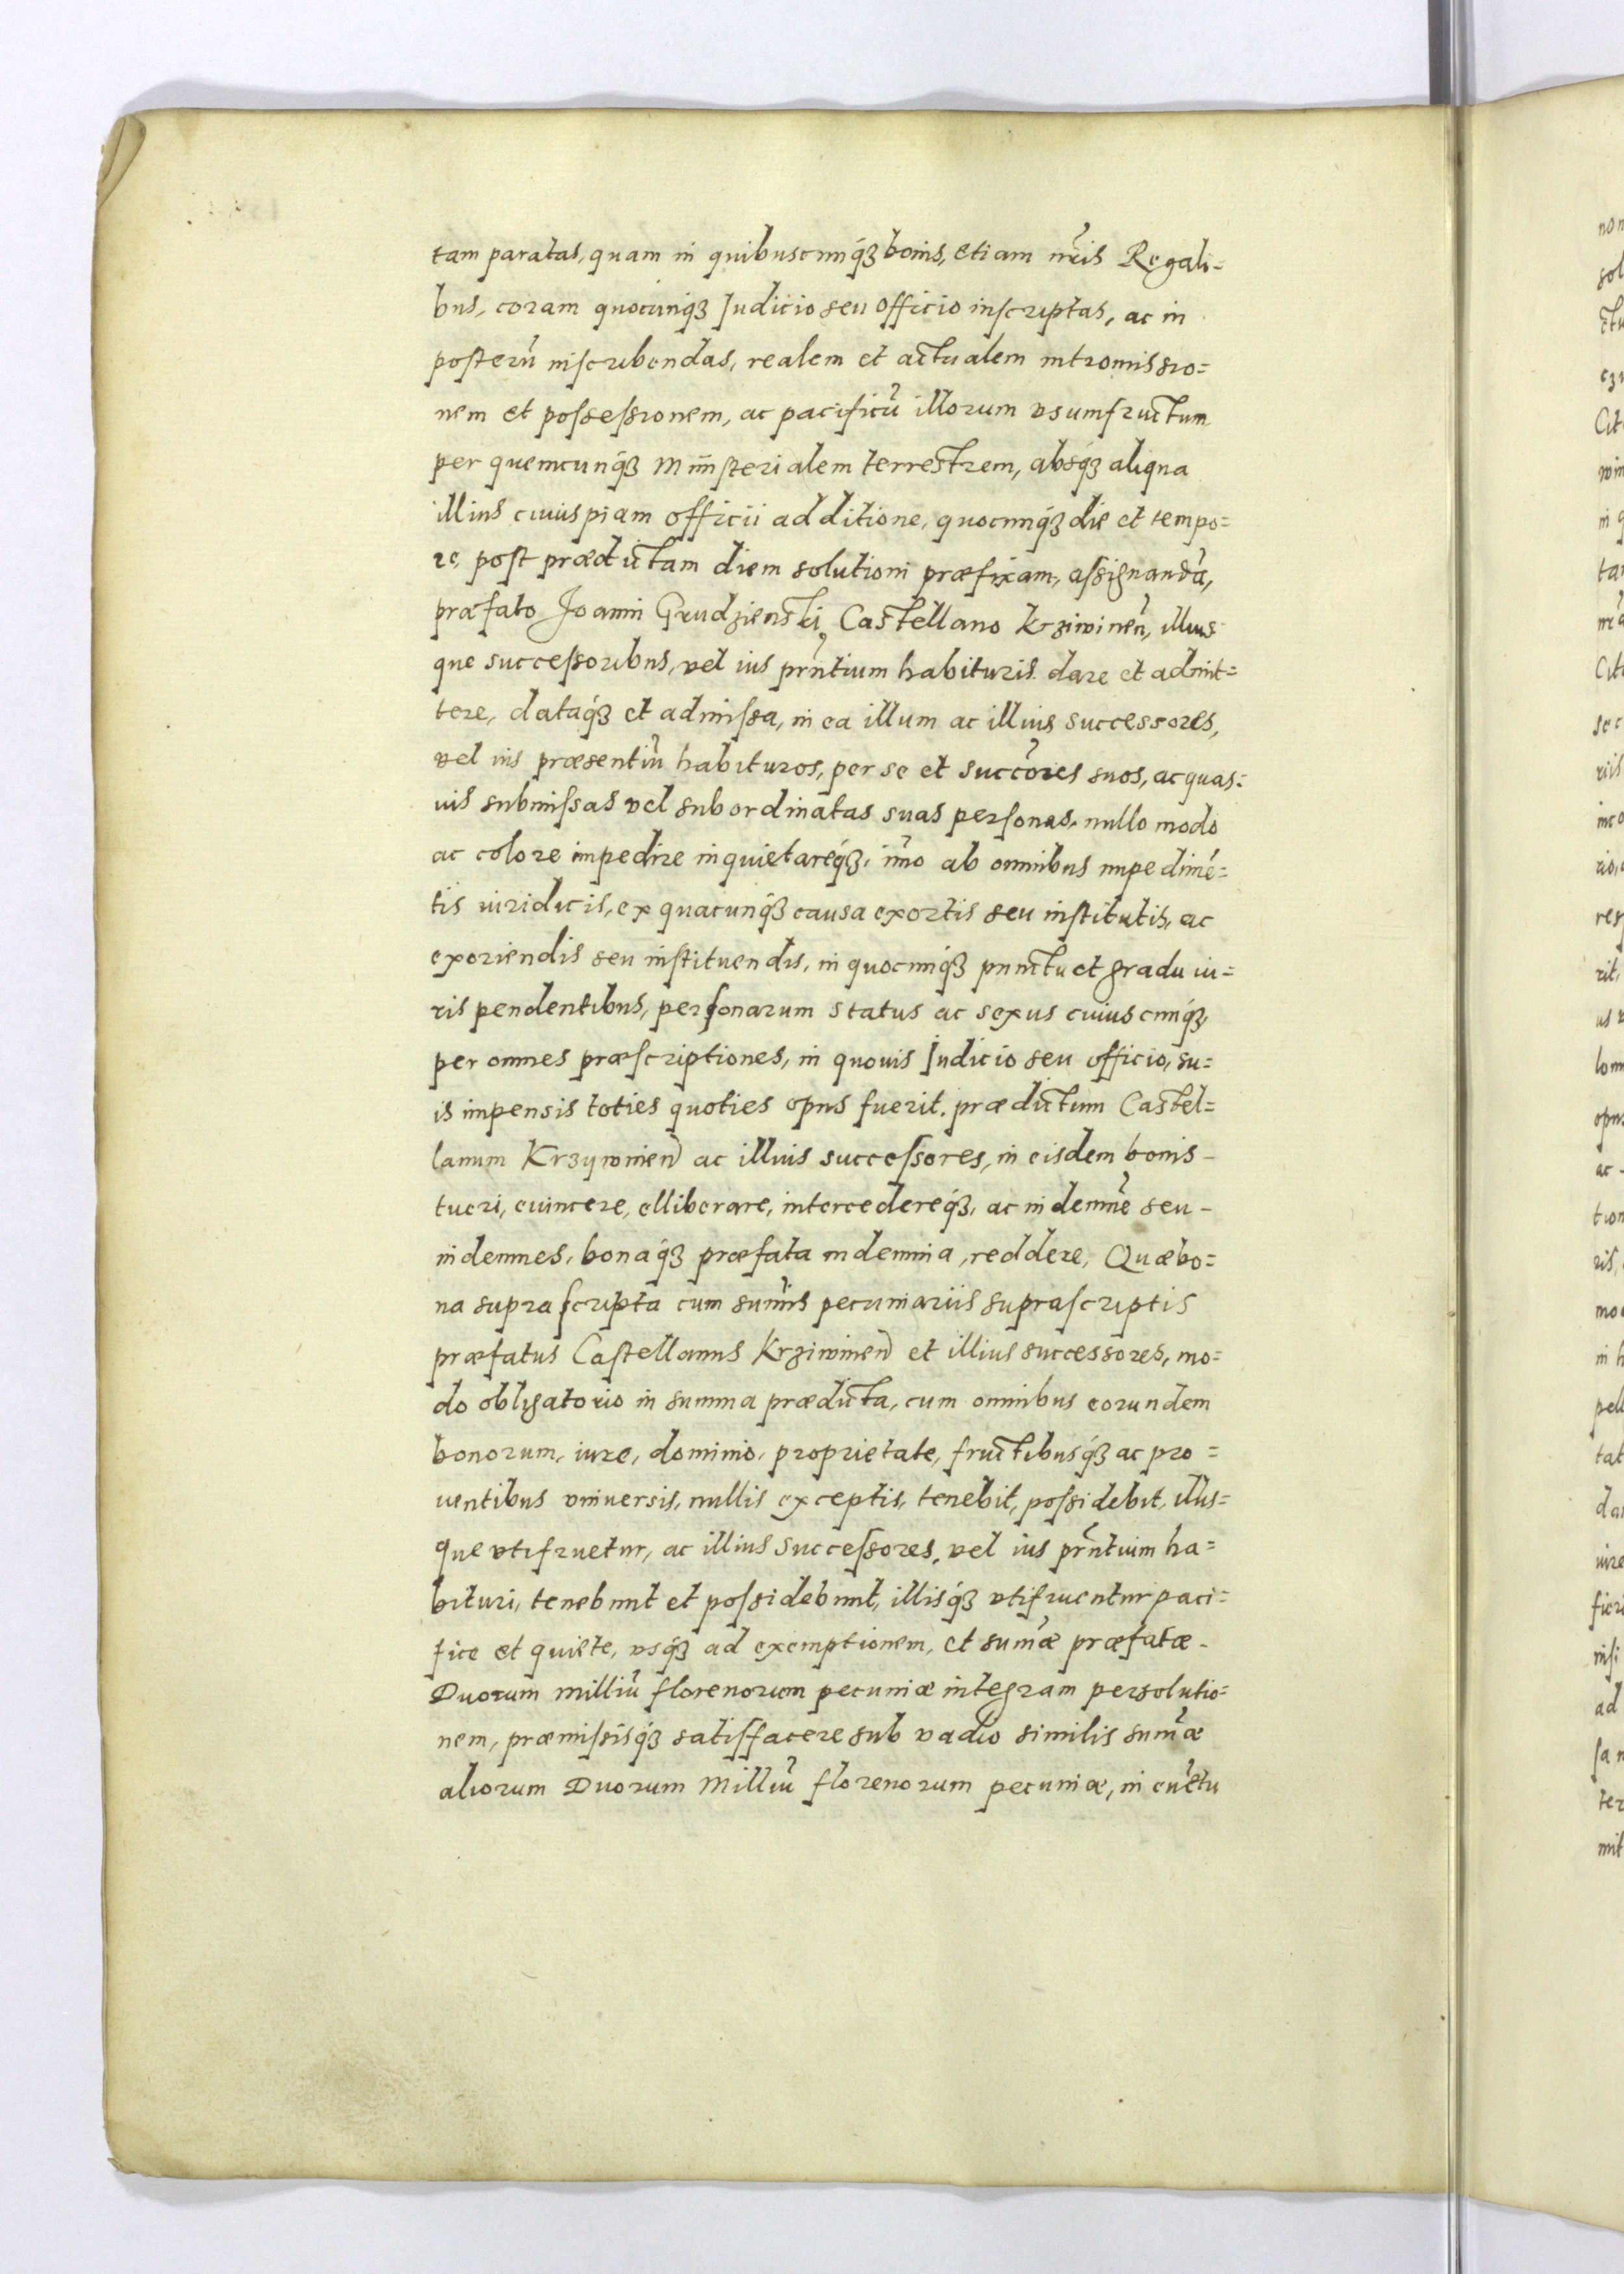 tam paratas, quam in quibuscunq́ꝫ bonis, etiam nr̃is Regali=
bus, coram quocunq́ꝫ Iudicio seu officio inscriptas, ac in
posterũ inscribendas, realem et actualem intromissio=
nem et possessionem, ac pacificũ illorum vsumfructum
per quemcunq́ꝫ Ministerialem terrestrem, absq́ꝫ aliqua
illius cuiuspiam officii additione, quocunq́ꝫ die et tempo=
re, post prædictam diem solutioni præfixam, assignandã,
præfato Joanni Grudzienski, Castellano Krziwineñ, illius
que successoribus, vel ius prñtium habituris dare et admit=
tere, dataq́ꝫ et admissa, in ea illum ac illius successores,
vel ius præsentiũ habituros, per se et succõres suos, ac quas=
uis submissas vel subordinatas suas personas, nullo modo
ac colore impedire inquietareq́ꝫ, im̃o ab omnibus impedimẽ=
tis iuridicis, ex quacunq́ꝫ causa exortis seu institutis, ac
exoriendis seu instituendis, in quocunq́ꝫ punctu et gradu iu=
ris pendentibus, personarum status ac sexus cuiuscunq́ꝫ,
per omnes præscriptiones, in quouis Iudicio seu officio, su=
is impensis toties quoties opus fuerit. prædictum Castel=
lanum Krzywinen̄ ac illius successores, in eisdem bonis -
tueri, euincere, elliberare, intercedereq́ꝫ, ac indemnẽ seu -
indemnes, bonaq́ꝫ præfata indemnia, reddere, Quæ bo=
na suprascripta cum sum̃is pecuniariis suprascriptis
præfatus Castellanus Krziwinen̄ et illius successores, mo=
do obligatorio in summa prædicta, cum omnibus eorundem
bonorum, iure, dominio, proprietate, fructibusq́ꝫ ac pro=
uentibus vniuersis, nullis exceptis, tenebit, possidebit, illis=
que vtifruetur, ac illius successores, vel ius prñtium ha=
bituri, tenebunt et possidebunt, illisq́ꝫ vtifruentur paci=
fice et quiete, vsq́ꝫ ad exemptionem, et sum̃æ præfatæ -
Duorum milliũ florenorum pecuniæ integram persolutio=
nem, præmissisq́ꝫ satisfacere sub vadio similis sum̃æ
aliorum Duorum Milliũ florenorum pecuniæ, in euẽtu